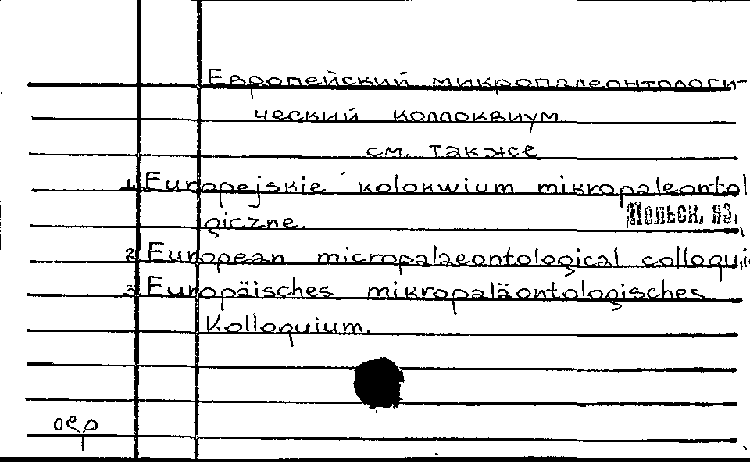 Европейский микропалеонтологи-
ческий коллоквиум
см. также
1. Europejskie kolokwium mikropaleontol
giczne. Польск. яз.
2. European micropalaeontological colloqui
3. Europäisches mikropaläontologisches
Kolloquium.